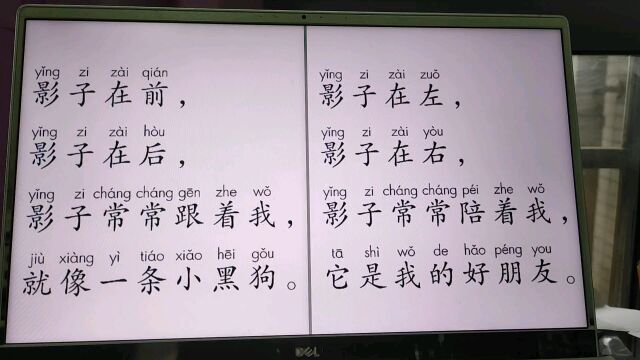 yǐng zi zài qián
影子在前，
yǐng zi zài hòu
影子在后，
yǐng zi cháng cháng gēn zhe wǒ
影子常常跟着我，
jiù xiàng yì tiáo xiǎo hēi gǒu
就像一条小黑狗。
yǐng zi zài zuǒ
影子在左，
yǐng zi zài yòu
影子在右，
yǐng zi cháng cháng péi zhe wǒ
影子常常陪着我，
tā shì wǒ de hǎo péng you
它是我的好朋友。
DELL